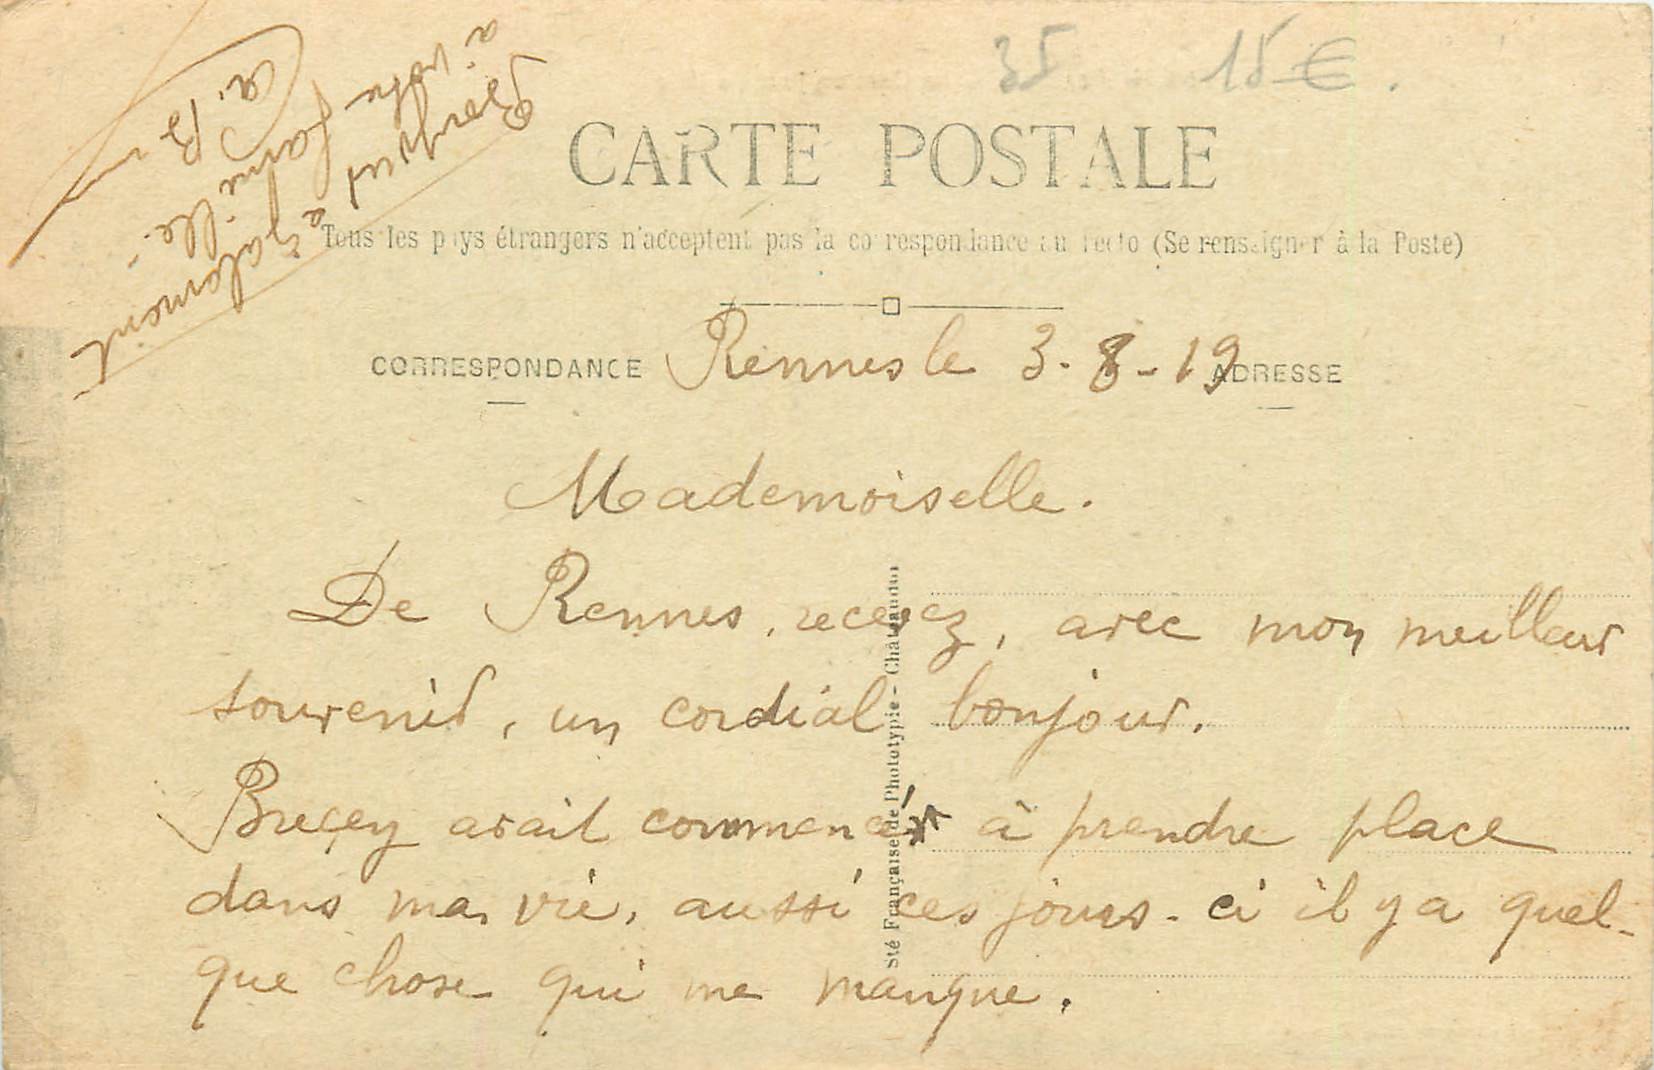 35 15 €.
CARTE POSTALE
Tous les pays étrangers n'acceptent pas la correspondance au recto (Se renseigner à la Poste)
CORRESPONDANCE
ADRESSE
Rennes le 3-8-19
Mademoiselle.
De Rennes, recevez, avec mon meilleur
souvenir, un cordial bonjour.
Breçey avait commencé à prendre place
dans ma vie, aussi ces jours-ci il y a quel-
que chose qui me manque.
Bonjour également
à votre famille.-
A. B
Sté Française de Phototypie - Châteaudun